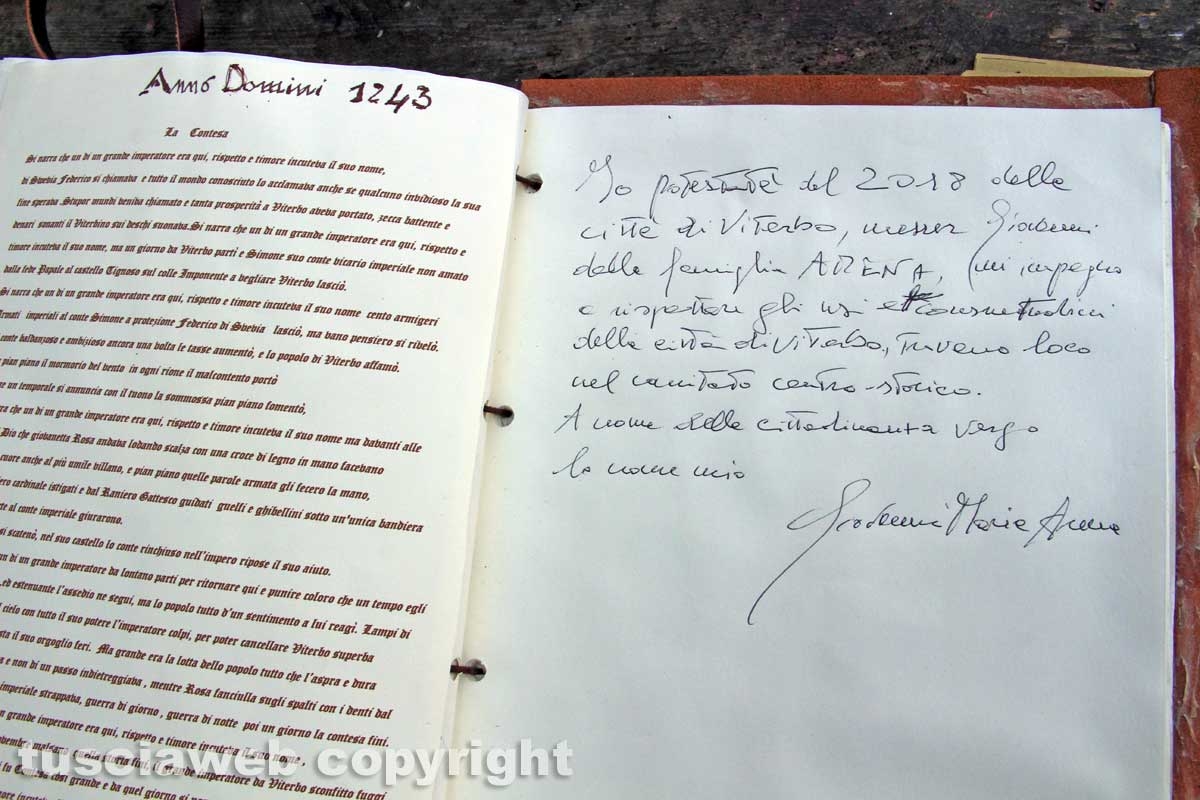 Anno Domini 1243
La Contesa
Si narra che un di un grande imperatore era qui, rispetto e timore incuteva il suo nome,
di Svevia Federico si chiamava e tutto il mondo conosciuto lo acclamava anche se qualcuno invidioso la sua
fine sperava. Stupor mundi veniva chiamato e tanta prosperità a Viterbo aveva portato, zecca battente e
denari sonanti il Viterbino sui deschi suonava.Si narra che un di un grande imperatore era qui, rispetto e
timore incuteva il suo nome, ma un giorno da Viterbo partì e Simone suo conte vicario imperiale non amato
dalla sede Papale al castello Tignoso sul colle Imponente a vegliare Viterbo lasciò.
Si narra che un di un grande imperatore era qui, rispetto e timore incuteva il suo nome cento armigeri
Armati imperiali al conte Simone a protezione Federico di Svevia lasciò, ma vano pensiero si rivelò.
conte baldanzoso e ambizioso ancora una volta le tasse aumentò, e lo popolo di Viterbo affamò.
pian piano il mormorio del vento in ogni rione il malcontento portò
me un temporale si annuncia con il tuono la sommossa pian piano fomentò,
ra che un di un grande imperatore era qui, rispetto e timore incuteva il suo nome ma davanti alle
Dio che giovanetta Rosa andava lodando scalza con una croce di legno in mano facevano
cuore anche al più umile villano, e pian piano quelle parole armata gli fecero la mano,
ero cardinale istigati e dal Raniero Gattesco guidati guelfi e ghibellini sotto un'unica bandiera
te al conte imperiale giurarono.
si scatenò, nel suo castello lo conte rinchiuso nell'impero ripose il suo aiuto.
un di un grande imperatore da lontano partì per ritornare qui e punire coloro che un tempo egli
,ed estenuante l'assedio ne seguì, ma lo popolo tutto d'un sentimento a lui reagì. Lampi di
l cielo con tutto il suo potere l'imperatore colpì, per poter cancellare Viterbo superba
sta il suo orgoglio ferì. Ma grande era la lotta dello popolo tutto che l'aspra e dura
a e non di un passo indietreggiava , mentre Rosa fanciulla sugli spalti con i denti dal
imperiale strappava, guerra di giorno , guerra di notte poi un giorno la contesa finì.
n grande imperatore era qui, rispetto e timore incuteva il suo nome ,
ovembre malsano quella storia finì, il grande imperatore da Viterbo sconfitto fuggì
fu Contesa così grande e da quel giorno si
Io potestate del 2018 della
città di Viterbo, messer Giovanni
della famiglia ARENA, mi impegno
a rispettare gli usi e consuetudini
della città di Viterbo, in loco
nel centro-storico.
A nome della cittadinanza vergo
lo nome mio
Giovanni Maria Arena
tusciaweb copyright